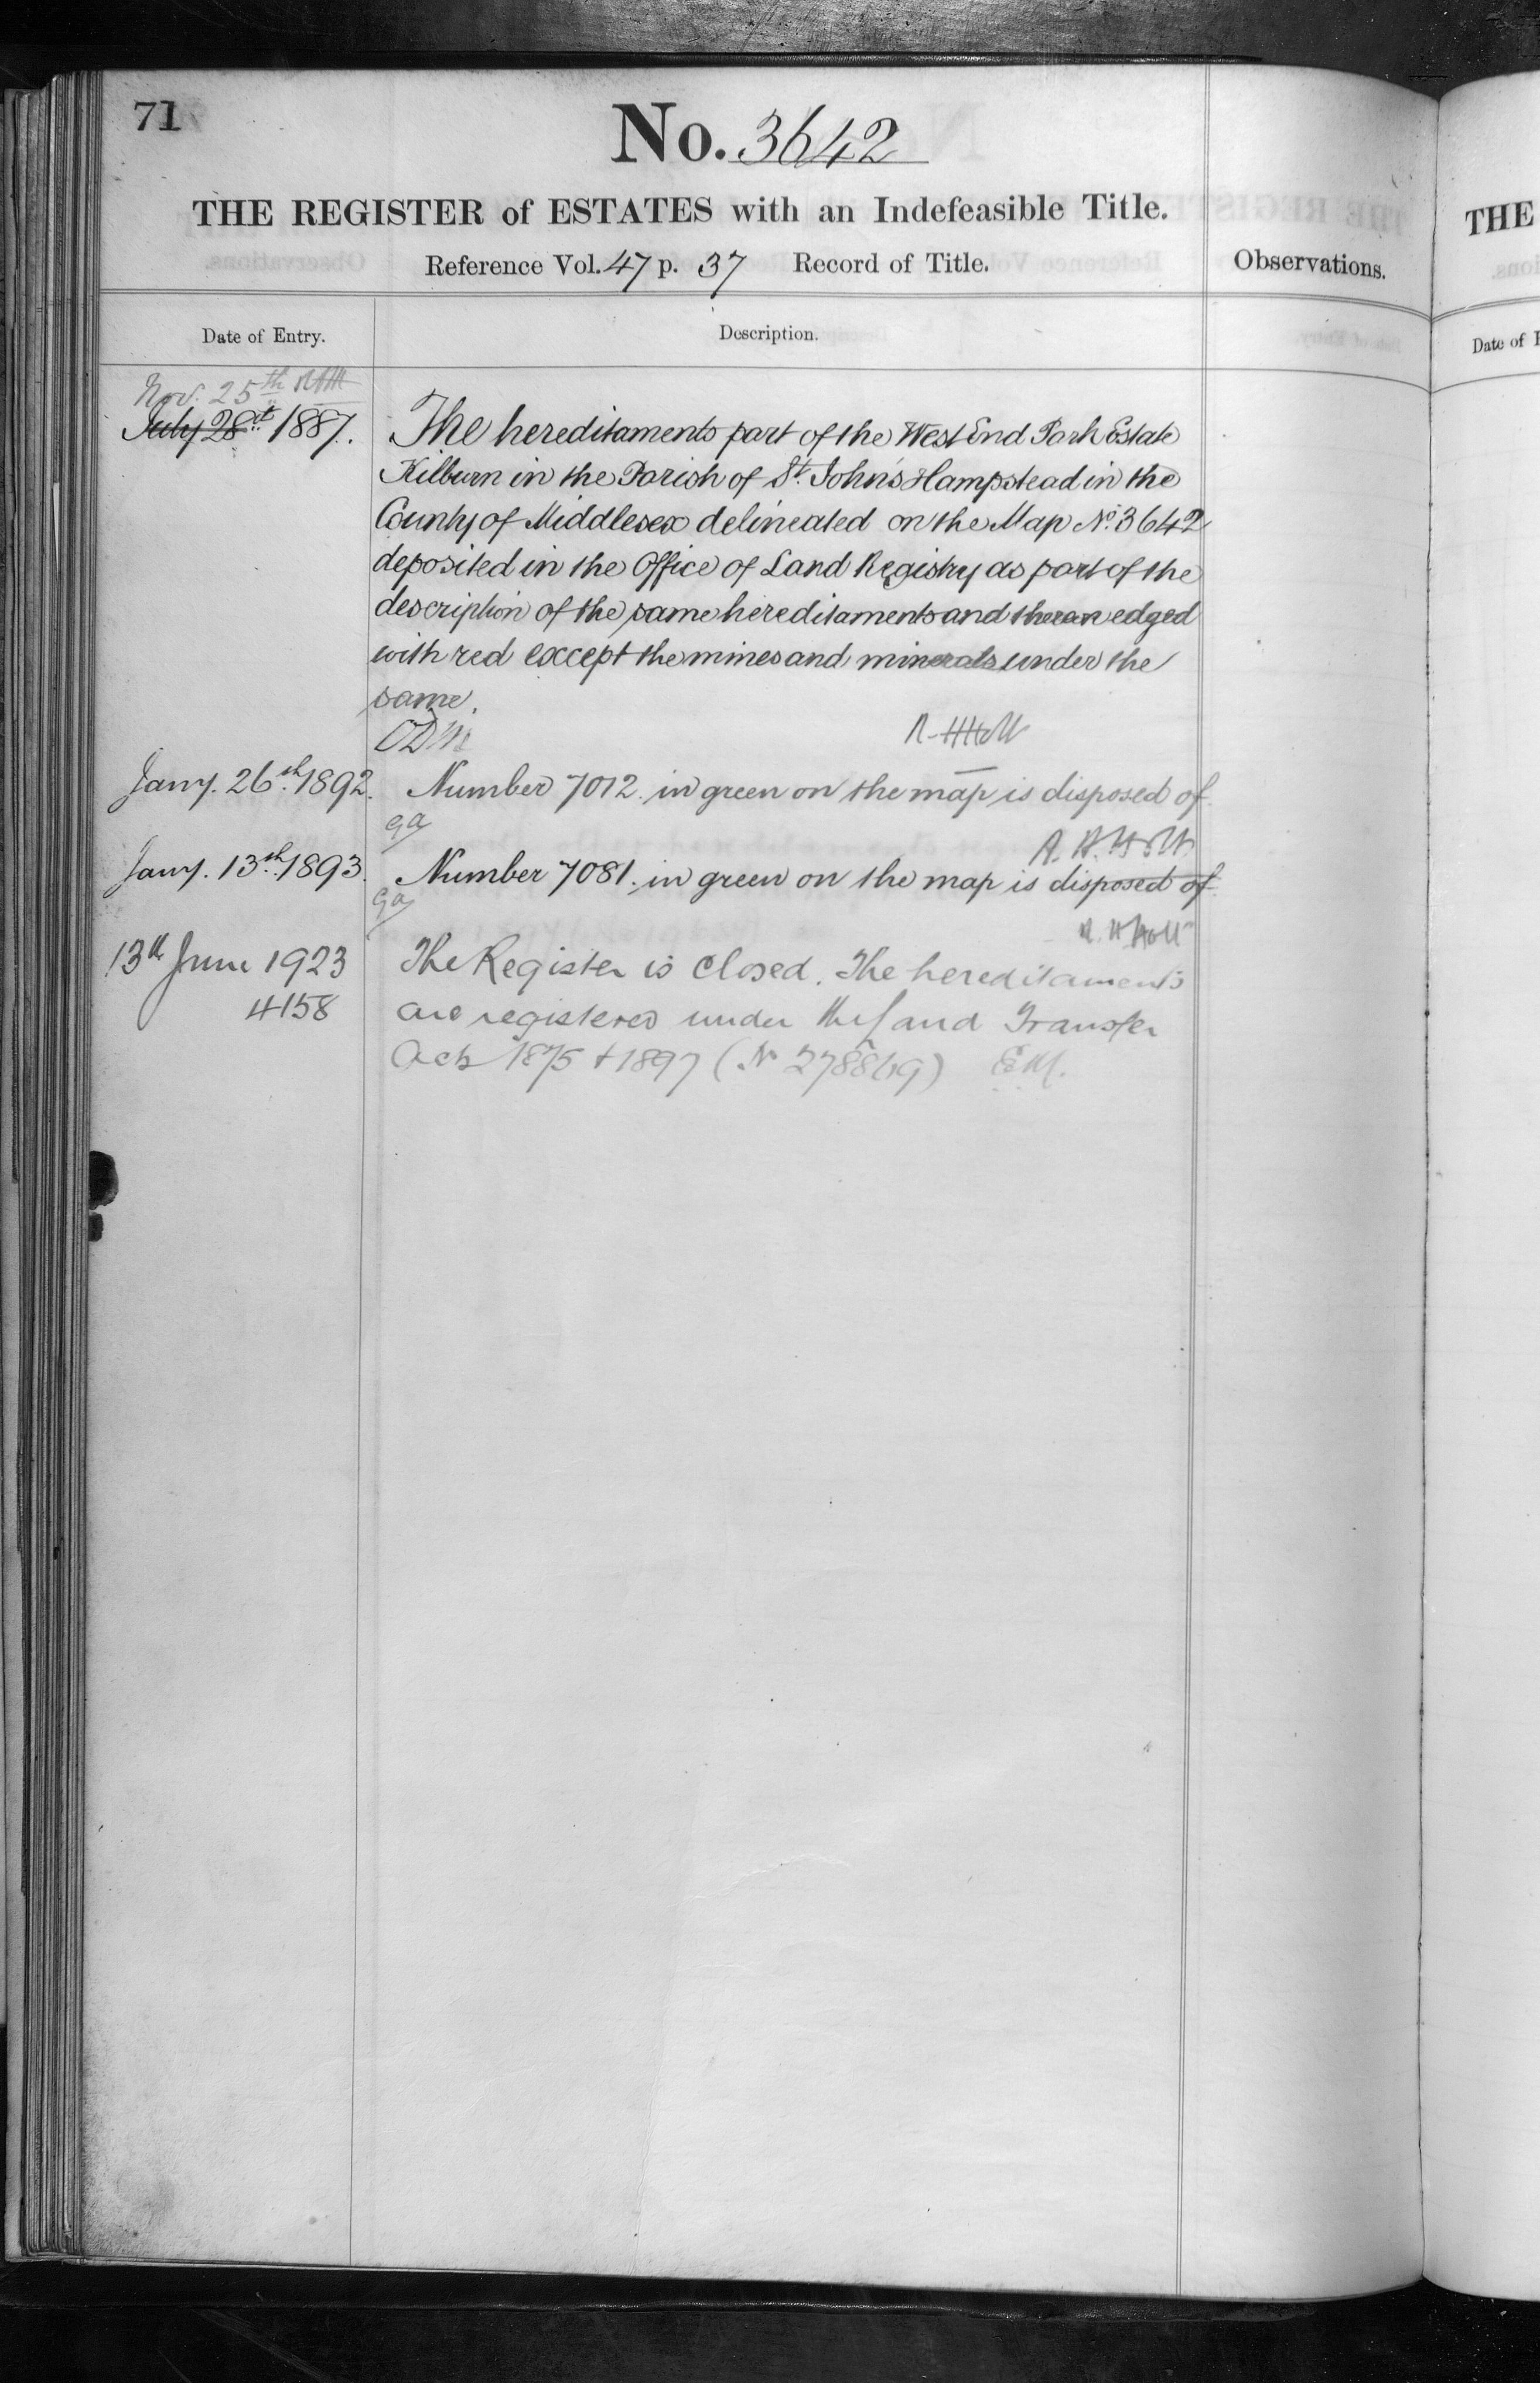 71
No. 3642
THE REGISTER of ESTATES with an Indefeasible Title.
Reference Vol. 47 p. 37 Record of Title.
Observations.
Date of Entry.
Description.
Nov. 25th
July 28t 1887.
The hereditaments part of the West End Park Estate
Kilburn in the Parish of St. John's Hampstead in the
County of Middlesex delineated on the Map No. 3642
deposited in the Office of Land Registry as part of the
description of the same hereditaments and thereon edged
with red except the mines and minerals under the
same.
R. H. Holt
Jany. 26th 1892. Number 7012 in green on the map is disposed of
ga
R. H. Holt
Jany. 13th 1893. Number 7081 in green on the map is disposed of
ga
R. H. Holt
13th June 1923 The Register is closed. The hereditaments
4158 are registered under the Land Transfer
Acts 1875 & 1897 (No 278869) EM.
THE
Date of